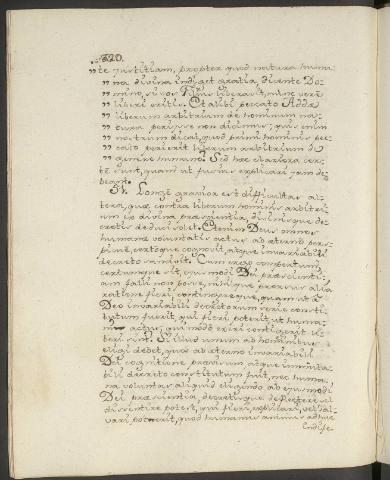 320.
„te justitiam, propter quod natura huma-
„na divina indiget gratia, dicente Do-
„mino, si vos Filius liberavit, tunc verè
„liberi eritis. Et alibi peccato Adæ
„liberum arbitrium de hominum na-
„tura periisse non dicimus; quis enim
„nostrum dicat, quod primi hominis pec-
„cato perierit liberum arbitrium de
„genere humano. Sed hæc clariora cer-
tè sunt, quam ut fusius explicari jam de-
beant.
51. Longè gravior est difficultas al-
tera, quæ contra liberum hominis arbitri-
um ex divina præscientia, divinisque de-
cretis deduci solet. Etenim Deus omnes
humanæ voluntatis actus ab æterno pers-
picuè, certoque cognovit, atque invariabili
decreto sancivit. Cum ergo compertum,
certumque sit, ejusmodi Dei præscienti-
am falli non posse, nihilque prorsus alia
ratione fieri, contingereque, quam ut à
Deo invariabili decretorum serie consti-
tutum fuerit, qui fieri poterit ut huma-
ni actus, qui modò existi contigerit li-
beri sint. Si illud unum ab hominibus
eligi debet, quod ab æterno invariabili
Dei cognitione prævisum atque immuta-
bili decreto constitutum fuit, nec huma-
na voluntas aliquid eligendo ab ejusmodi
Dei præscientia, decretisque deflectere vel
dissentire potest, qui fieri, explicari, vel sal-
vari poterit, quod humanus animus adhuc